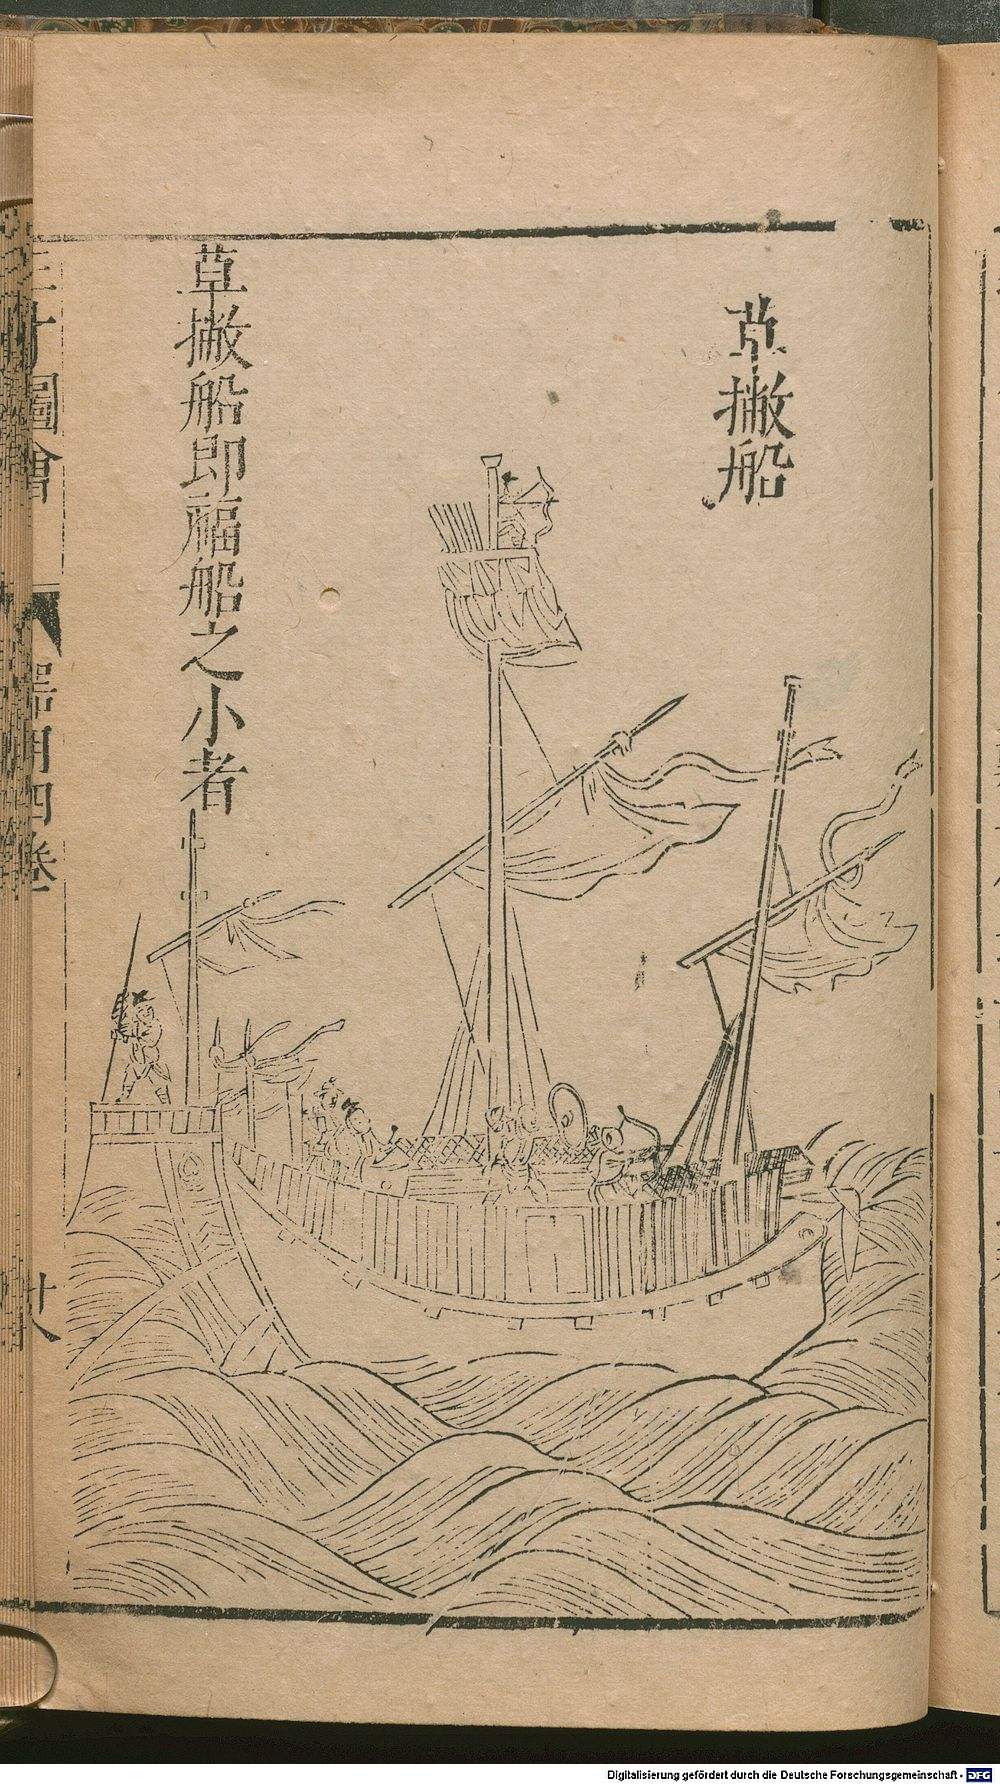 草撇船
草撇船即福船之小者
三才圖會
器用四卷
Digitalisierung gefördert durch die Deutsche Forschungsgemeinschaft - DFG